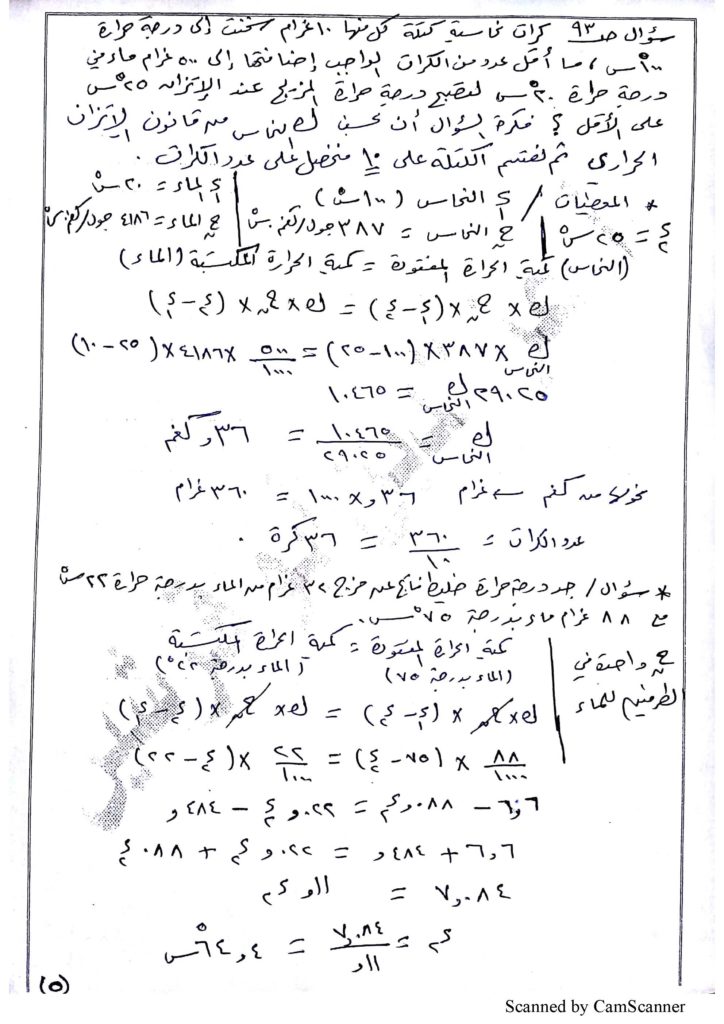 سؤال صـ ٩٣ كرات نحاسية كتلة كل منها ١٠ غرام سخنت إلى درجة حرارة
١٠٠ ْس ، ما أقل عدد من الكرات الواجب إضافتها إلى ٥٠٠ غرام ماء في
درجة حرارة ٢٠ ْس لتصبح درجة حرارة المزيج عند الإتزان ٢٥ ْس
على الأقل ؟ فكرة السؤال أن نحسب ك النحاس من قانون الإتزان
الحراري ثم نقسم الكتلة على ١٠ فنحصل على عدد الكرات .
* المعطيات / د١ النحاس (١٠٠ ْس) | د١ الماء = ٢٠ ْس
د٢ = ٢٥ ْس | حن النحاس = ٣٨٧ جول/كغم.ْس | حن الماء = ٤١٨٦ جول/كغم.ْس
(النحاس) كمية الحرارة المفقودة = كمية الحرارة المكتسبة (الماء)
ك × حن × (د١ – د٢) = ك × حن × (د٢ – د١)
ك النحاس × ٣٨٧ × (١٠٠ – ٢٥) = ٥٠٠/١٠٠٠ × ٤١٨٦ × (٢٥ – ١٠)
٢٩٠٢٥ ك النحاس = ١٠٤٦٥
ك النحاس = ١٠٤٦٥/٢٩٠٢٥ = ٣٦و كغم
نحولها من كغم ← غرام ٣٦و × ١٠٠٠ = ٣٦٠ غرام
عدد الكرات = ٣٦٠/١٠ = ٣٦ كرة .
* سؤال / جد درجة حرارة خليط ناتج عن مزج ٢٢ غرام من الماء بدرجة حرارة ٢٢ ْس
مع ٨٨ غرام ماء بدرجة ٧٥ ْس.
كمية الحرارة المفقودة = كمية الحرارة المكتسبة
(الماء بدرجة ٧٥) (الماء بدرجة ٢٢ ْ)
حن واحدة في
الطرفين للماء
ك × حن × (د١ – د٢) = ك × حن × (د٢ – د١)
٨٨/١٠٠٠ × (٧٥ – د٢) = ٢٢/١٠٠٠ × (د٢ – ٢٢)
٦,٦ – ٠٨٨و د٢ = ٠٢٢و د٢ – ٤٨٤و
٦,٦ + ٤٨٤و = ٠٢٢و د٢ + ٠٨٨و د٢
٧,٠٨٤ = ١١و د٢
د٢ = ٧,٠٨٤/١١و = ٦٤,٤ ْس
(٥)
Scanned by CamScanner